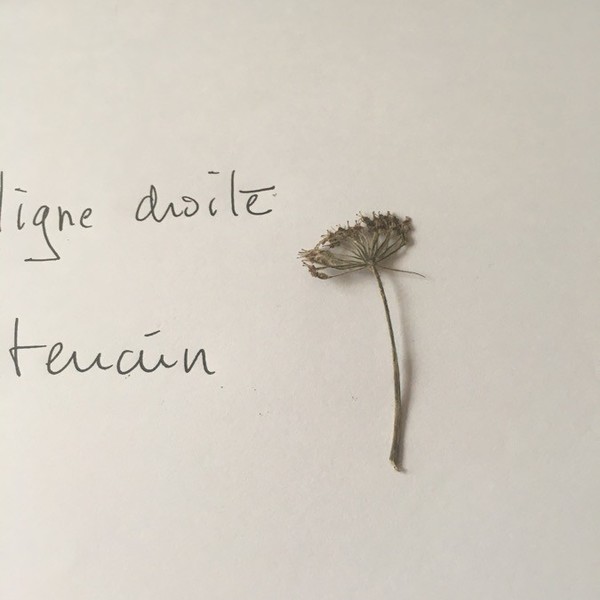 ligne droite
terrain